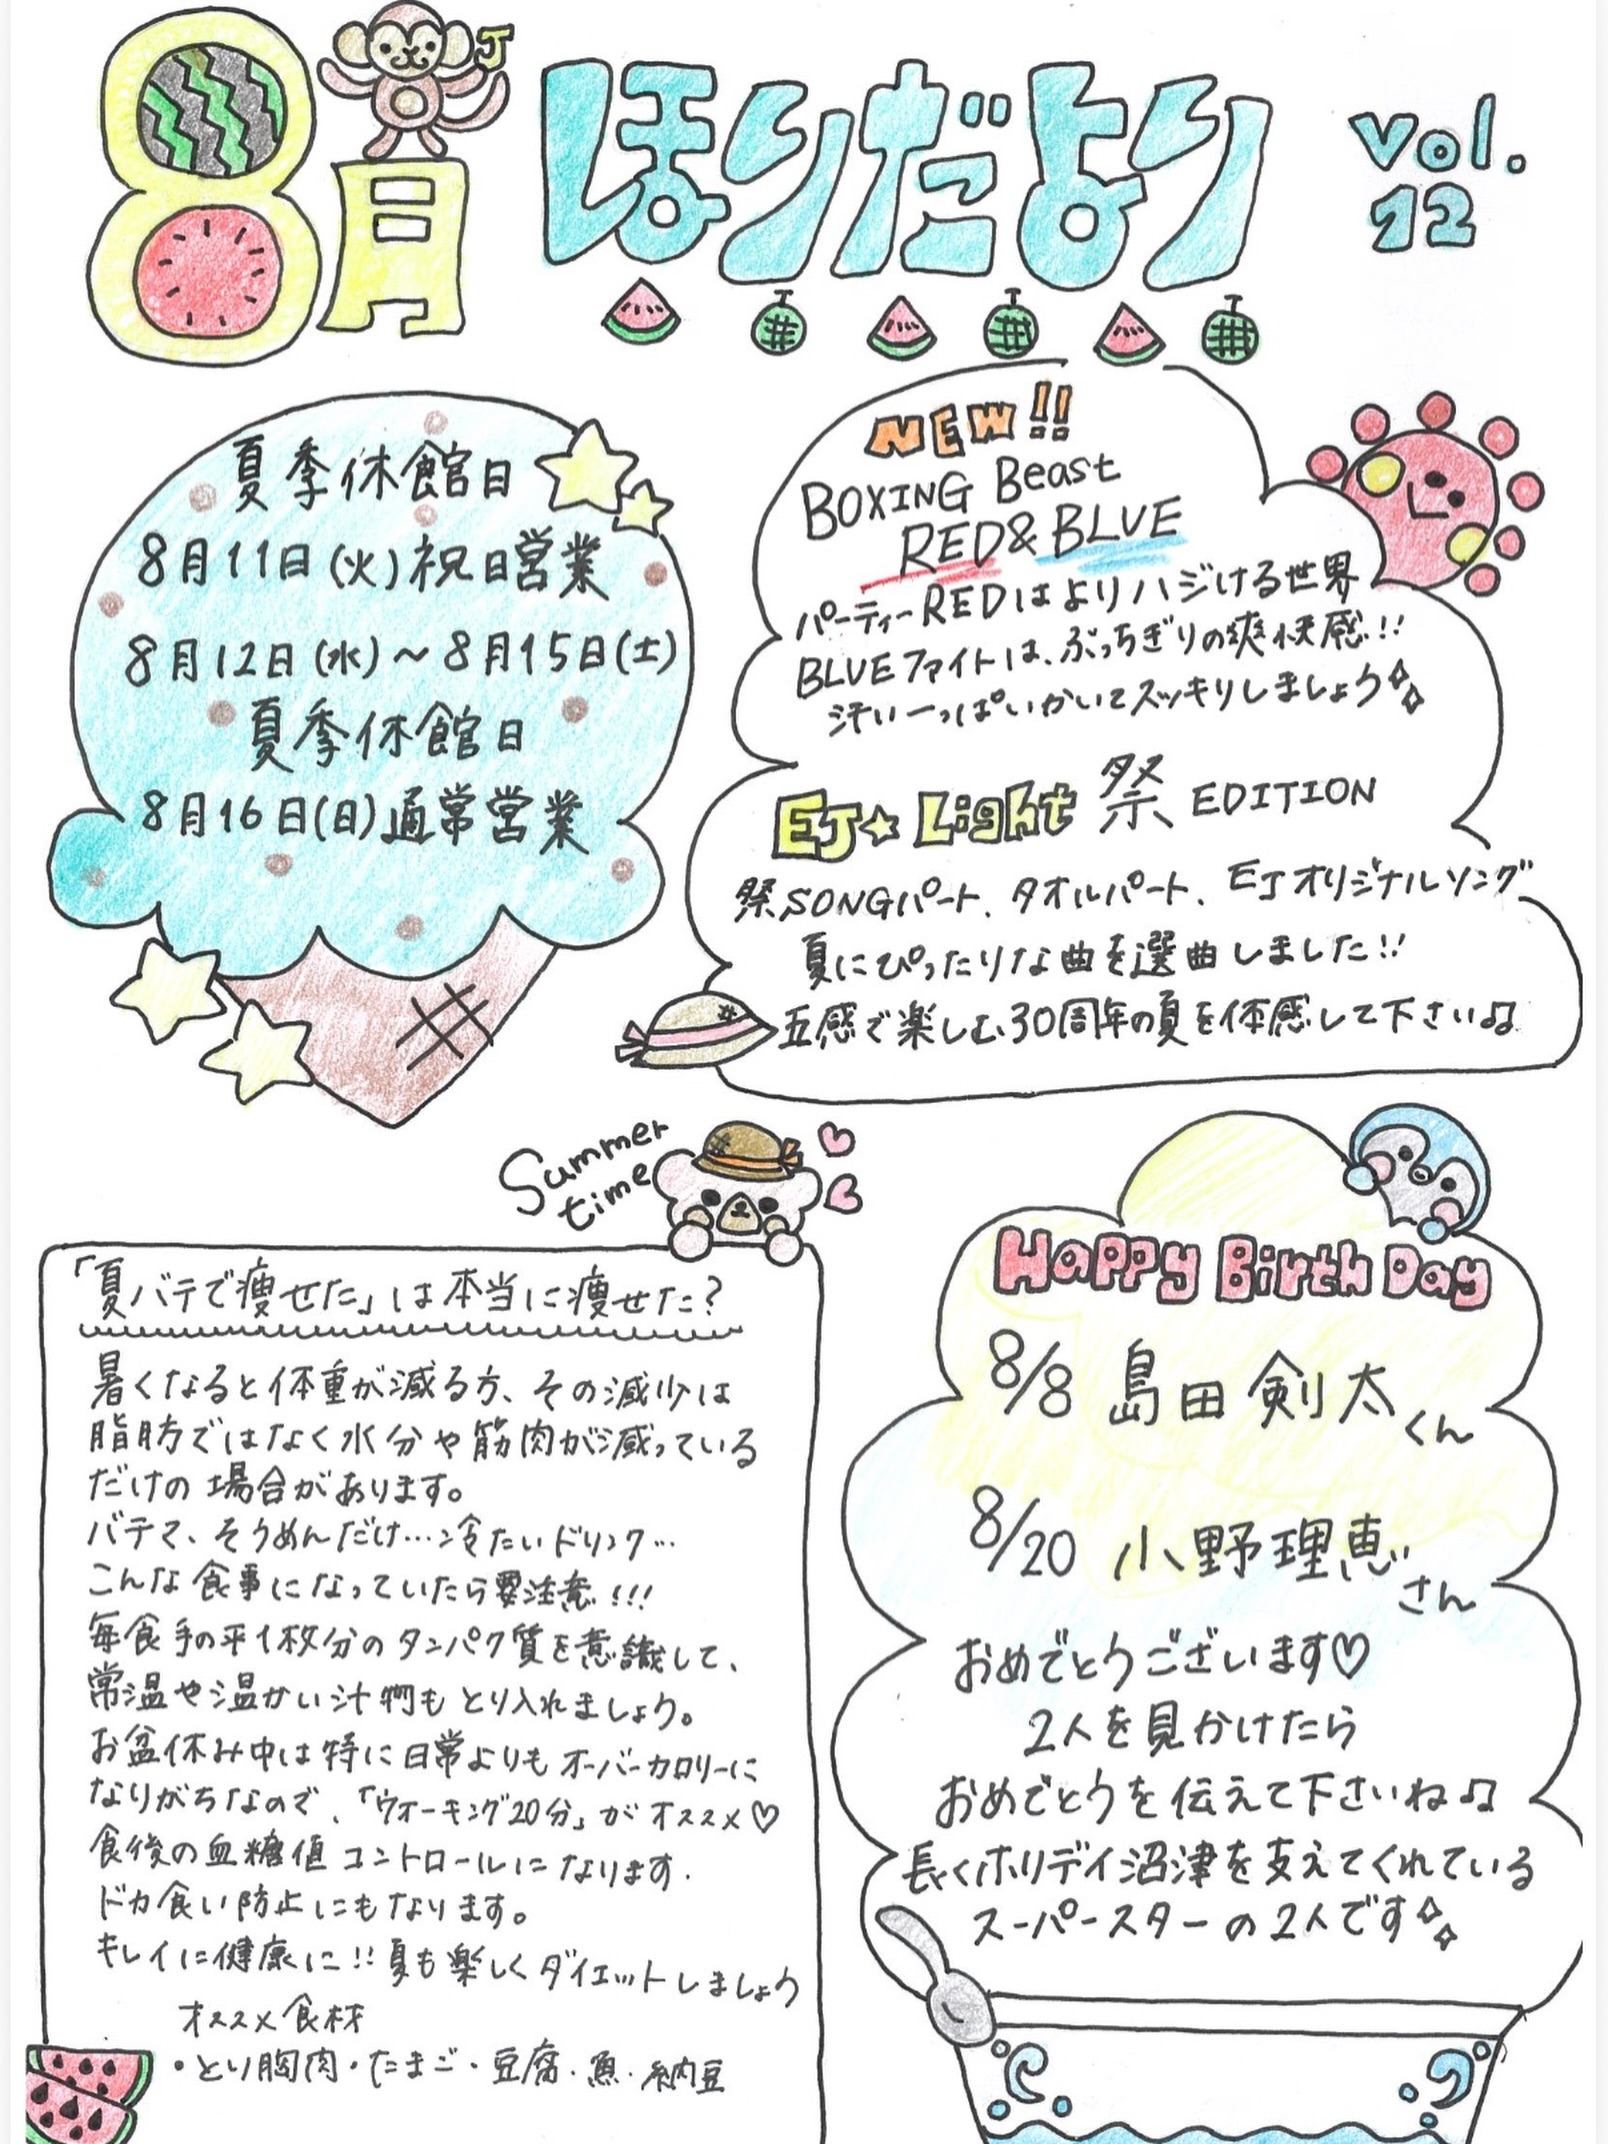 8月 ほりだより vol.12
J
夏季休館日
8月11日(火)祝日営業
8月12日(水)～8月15日(土)
夏季休館日
8月16日(日)通常営業
NEW!!
BOXING Beast
RED&BLUE
パーティーREDはよりハジける世界
BLUEファイトは、ぶっちぎりの爽快感!!
汗いーっぱいかいてスッキリしましょう
EJ☆Light 祭 EDITION
祭SONGパート、タオルパート、EJオリジナルソング
夏にぴったりな曲を選曲しました!!
五感で楽しむ30周年の夏を体感して下さい♫
Summer
time
「夏バテで痩せた」は本当に痩せた?
暑くなると体重が減る方、その減少は
脂肪ではなく水分や筋肉が減っている
だけの場合があります。
バテて、そうめんだけ…冷たいドリンク…
こんな食事になっていたら要注意!!!
毎食手の平1枚分のタンパク質を意識して、
常温や温かい汁物もとり入れましょう。
お盆休み中は特に日常よりもオーバーカロリーに
なりがちなので、「ウォーキング20分」がオススメ♡
食後の血糖値コントロールになります.
ドカ食い防止にもなります。
キレイに健康に!!夏も楽しくダイエットしましょう
オススメ食材
・とり胸肉・たまご・豆腐・魚・納豆
Happy Birth Day
8/8 島田剣太くん
8/20 小野理恵さん
おめでとうございます♡
2人を見かけたら
おめでとうを伝えて下さいね♫
長くホリデイ沼津を支えてくれている
スーパースターの2人です